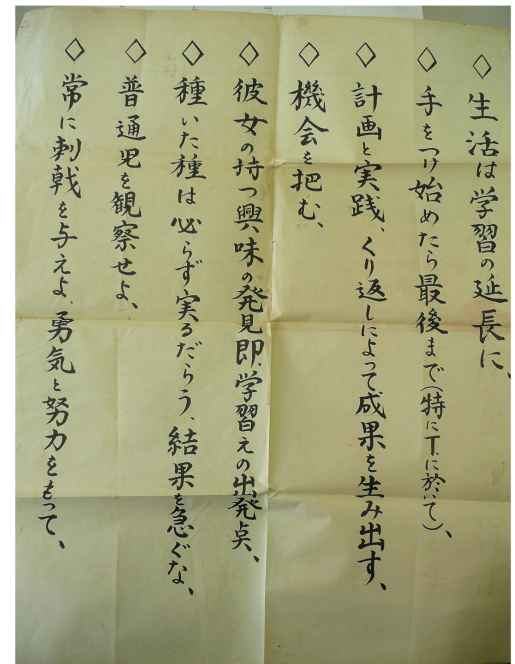 ◇生活は学習の延長に、
◇手をつけ始めたら最後まで(特にT.に於いて)、
◇計画と実践、くり返しによって成果を生み出す、
◇機会を把む、
◇彼女の持つ興味の発見即、学習えの出発点、
◇種いた種は必らず実るだらう、結果を急ぐな、
◇普通児を観察せよ、
◇常に刺戟を与えよ、勇気と努力をもって、